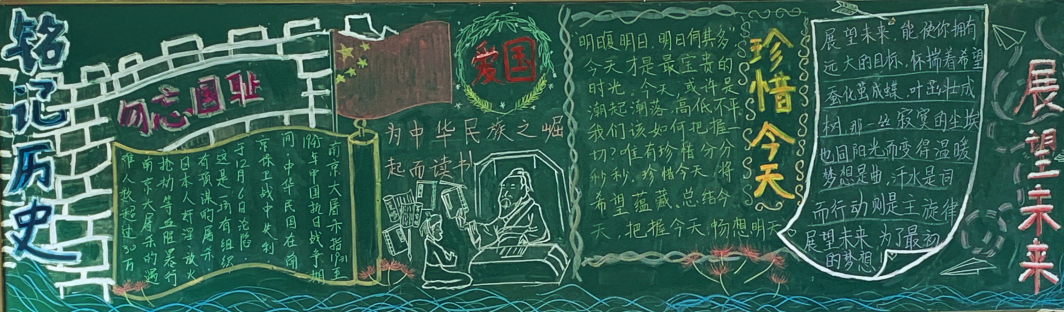 铭记历史
勿忘国耻
爱国
为中华民族之崛
起而读书
南京大屠杀指1931至
1945年中国抗日战争期
间,中华民国在南
京保卫战中失利
于12月6日沦陷
这是一所有组织
有预谋的屠杀
日本人奸淫放火
抢劫等血腥暴行
南京大屠杀的遇
难人数超过30万
珍惜今天
明日复明日,明日何其多"
今天才是最宝贵的
时光。今天或许是
潮起潮落,高低不平
我们该如何把握一
切?唯有珍惜分分
秒秒。珍惜今天,将
希望蕴藏、总结今
天、把握今天畅想明天
展望未来
展望未来,能使你拥有
远大的目标,怀揣着希望
蚕化茧成蝶,叶茁壮成
树,那一丝寂寞的尘埃
也因阳光而变得温暖
梦想是曲,汗水是词
而行动则是主旋律
展望未来,为了最初
的梦想!